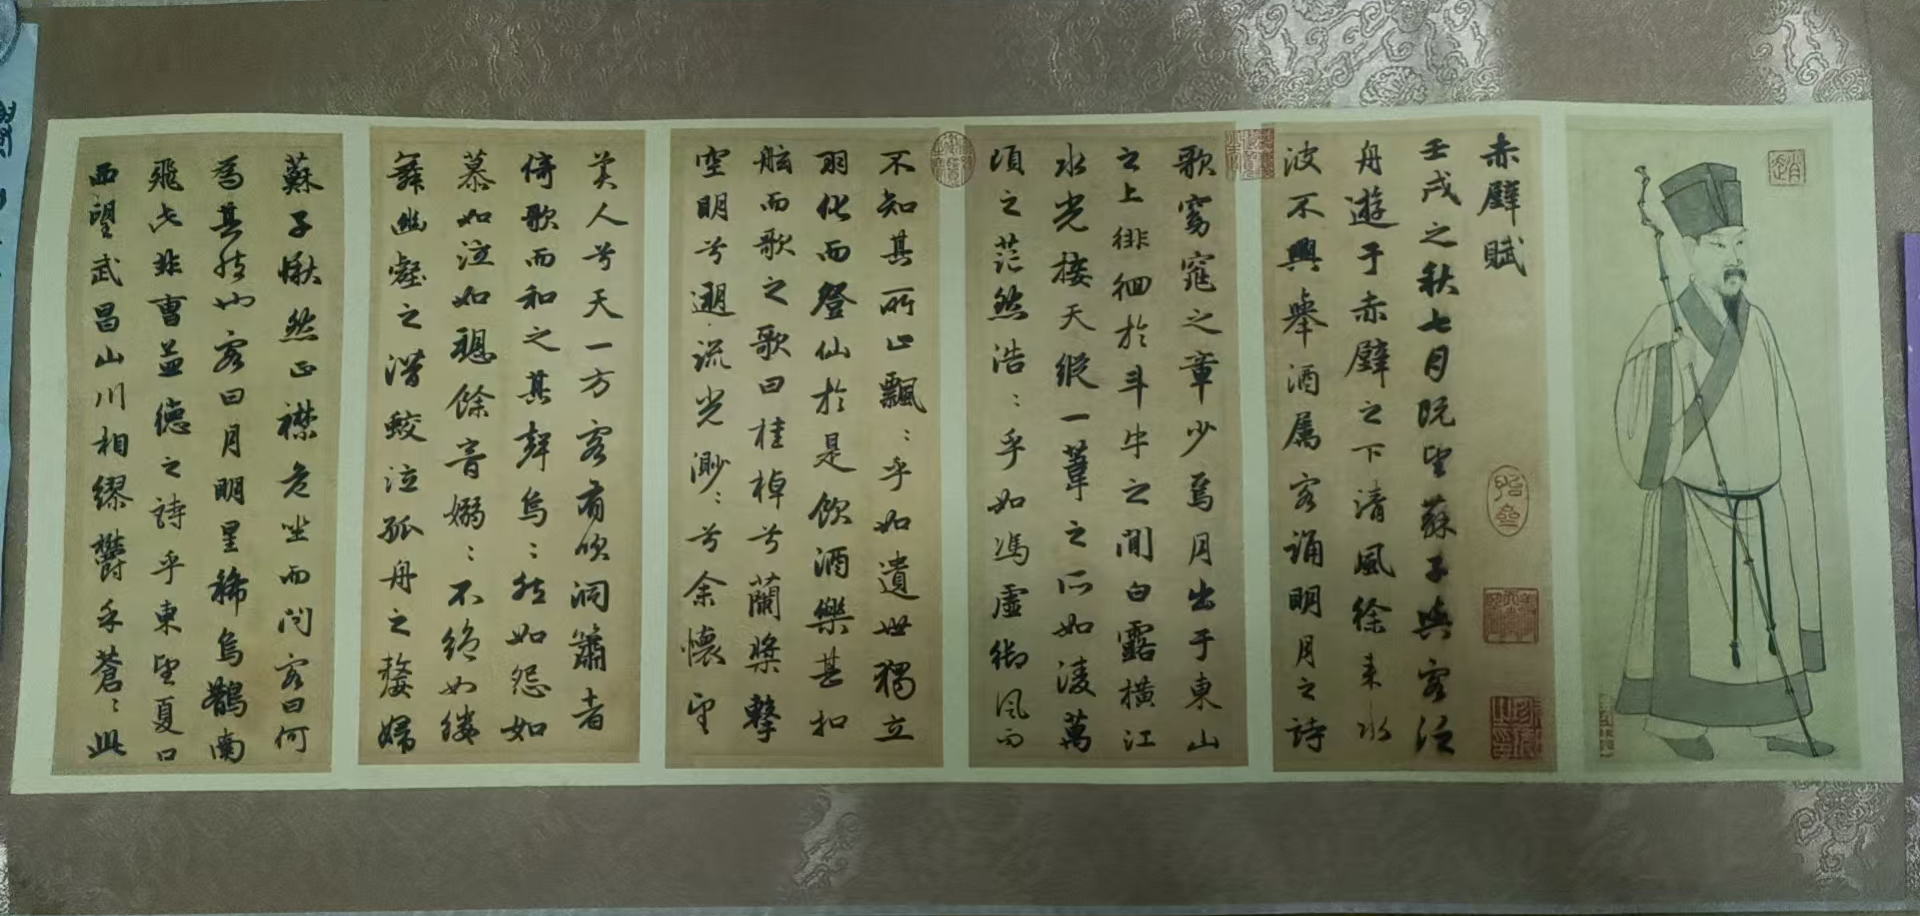 赤壁賦
壬戌之秋七月既望蘇子與客泛
舟遊于赤壁之下清風徐来水
波不興舉酒属客誦明月之詩
歌窈窕之章少焉月出于東山
之上徘徊於斗牛之間白露橫江
水光接天縱一葦之所如淩萬
頃之茫然浩：乎如馮虛御風而
不知其所止飄：乎如遺世獨立
羽化而登仙於是飲酒樂甚扣
舷而歌之歌曰桂棹兮蘭槳擊
空明兮遡流光渺：兮余懷望
美人兮天一方客有吹洞簫者
倚歌而和之其聲烏：然如怨如
慕如泣如愬餘音嫋：不絕如縷
舞幽壑之潛蛟泣孤舟之嫠婦
蘇子愀然正襟危坐而問客曰何
為其然也客曰月明星稀烏鵲南
飛此非曹孟德之詩乎東望夏口
西望武昌山川相繆鬱乎蒼：此